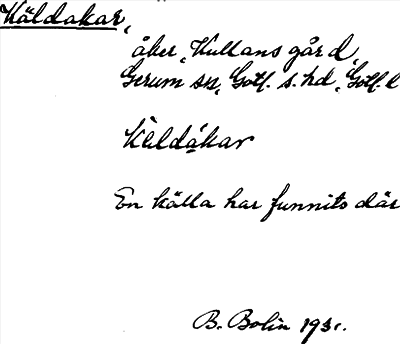 Käldakar,
åker, Kullans gård,
Gerum sn, Gotl. s. hd, Gotl. l
Kèldákar
En källa har funnits där
B. Bolin 1931.